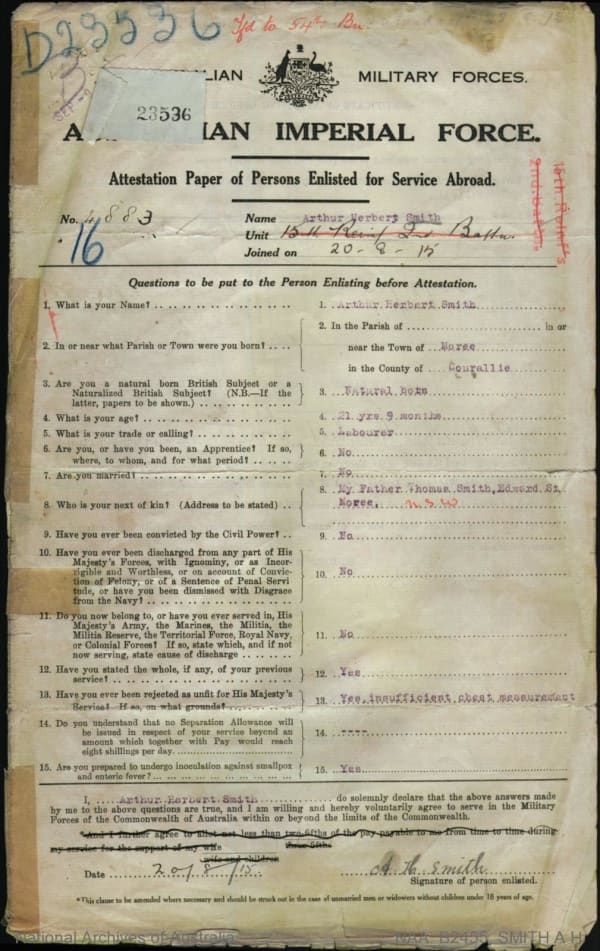 D23536
Tfd to 54th Bn.
SEP
23536
LIAN MILITARY FORCES.
A IAN IMPERIAL FORCE.
Attestation Paper of Persons Enlisted for Service Abroad.
15th Reinf's
2nd Battn
No. 4883
Name Arthur Herbert Smith
16
Unit 15th Reinf 2nd Battn.
Joined on 20-8-15
Questions to be put to the Person Enlisting before Attestation.
1. What is your Name? .. 1. Arthur Herbert Smith
2. In or near what Parish or Town were you born? ..
2. In the Parish of ... in or
near the Town of Moree
in the County of Courallie
3. Are you a natural born British Subject or a
Naturalized British Subject? (N.B.—If the
latter, papers to be shown.) ..
3. Natural born
4. What is your age? .. 4. 21 yrs 9 months
5. What is your trade or calling? .. 5. Labourer
6. Are you, or have you been, an Apprentice? If so,
where, to whom, and for what period? ..
6. No
7. Are you married? .. 7. No
8. Who is your next of kin? (Address to be stated) ..
8. My Father Thomas Smith, Edward St,
Moree, NSW
9. Have you ever been convicted by the Civil Power? .. 9. No
10. Have you ever been discharged from any part of His
Majesty's Forces, with Ignominy, or as Incor-
rigible and Worthless, or on account of Convic-
tion of Felony, or of a Sentence of Penal Servi
tude, or have you been dismissed with Disgrace
from the Navy? ..
10. No
11. Do you now belong to, or have you ever served in, His
Majesty's Army, the Marines, the Militia, the
Militia Reserve, the Territorial Force, Royal Navy,
or Colonial Forces? If so, state which, and if not
now serving, state cause of discharge ..
11. No
12. Have you stated the whole, if any, of your previous
service? ..
12. Yes
13. Have you ever been rejected as unfit for His Majesty's
Service? If so, on what grounds? ..
13. Yes, insufficient chest measurement
14. Do you understand that no Separation Allowance will
be issued in respect of your service beyond an
amount which together with Pay would reach
eight shillings per day.
14. ----
15. Are you prepared to undergo inoculation against smallpox
and enteric fever? ..
15. Yes
I, Arthur Herbert Smith do solemnly declare that the above answers made
by me to the above questions are true, and I am willing and hereby voluntarily agree to serve in the Military
Forces of the Commonwealth of Australia within or beyond the limits of the Commonwealth.
*And I further agree to allot not less than two-fifths of the pay payable to me from time to time during
three-fifths
my service for the support of my wife
wife and children
Date 20/8/15 A H Smith
Signature of person enlisted.
*This clause to be amended where necessary and should be struck out in the case of unmarried men or widowers without children under 18 years of age.
National Archives of Australia NAA: B2455, SMITH A H